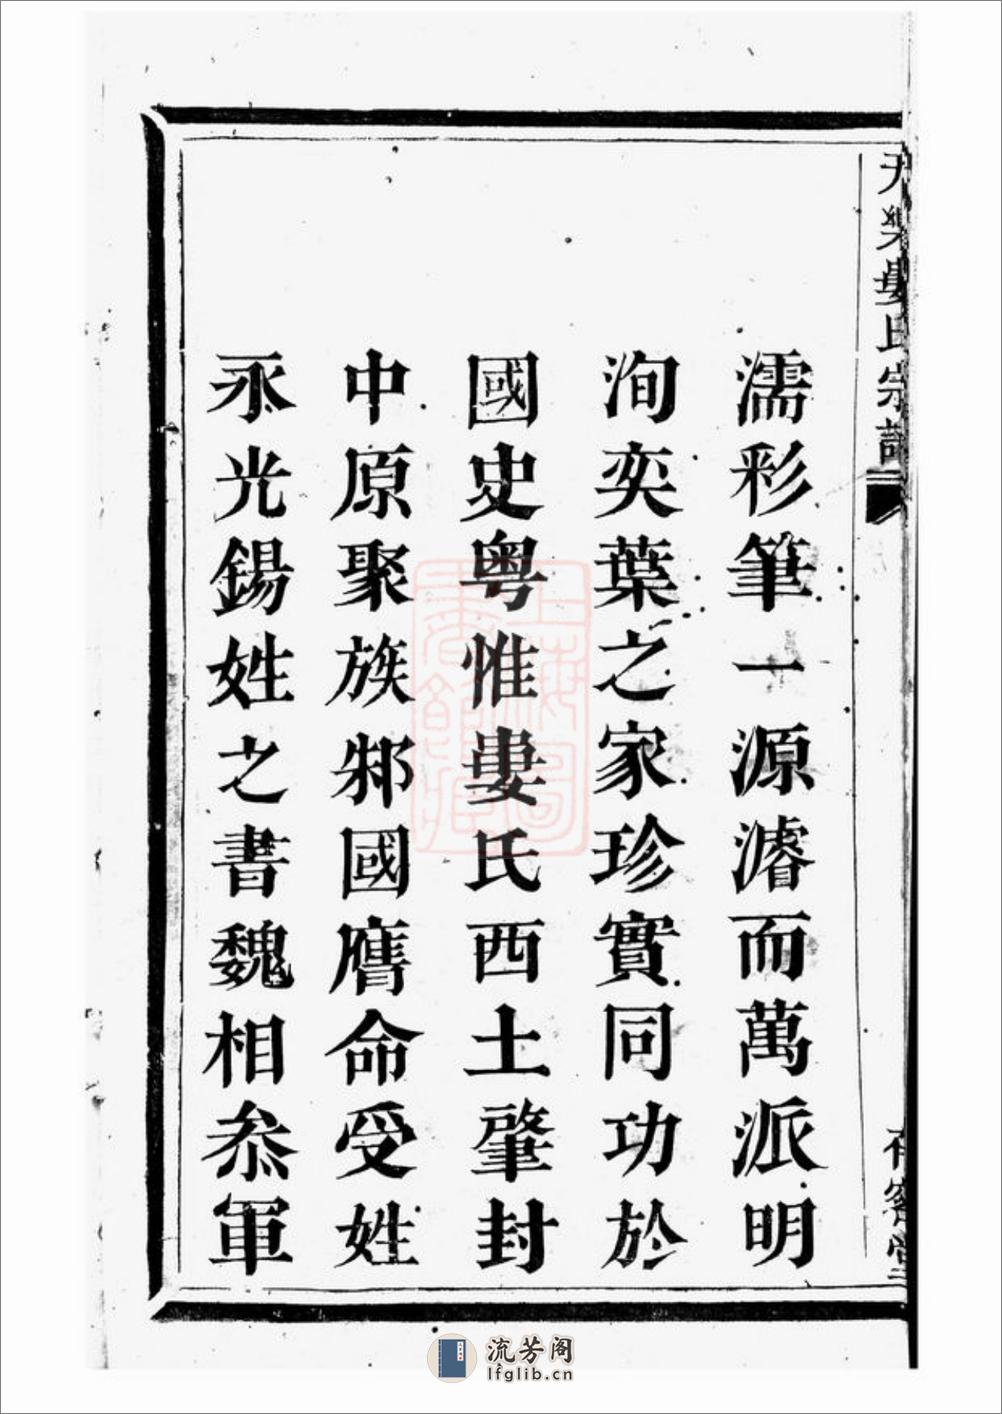 天樂婁氏宗譜
濡彩筆一源濬而萬派明
洵奕葉之家珍實同功於
國史粤惟婁氏西土肇封
中原聚族邾國膺命受姓
丞光錫姓之書魏相叅軍
上海圖書館藏
流芳阁
lfglib.cn